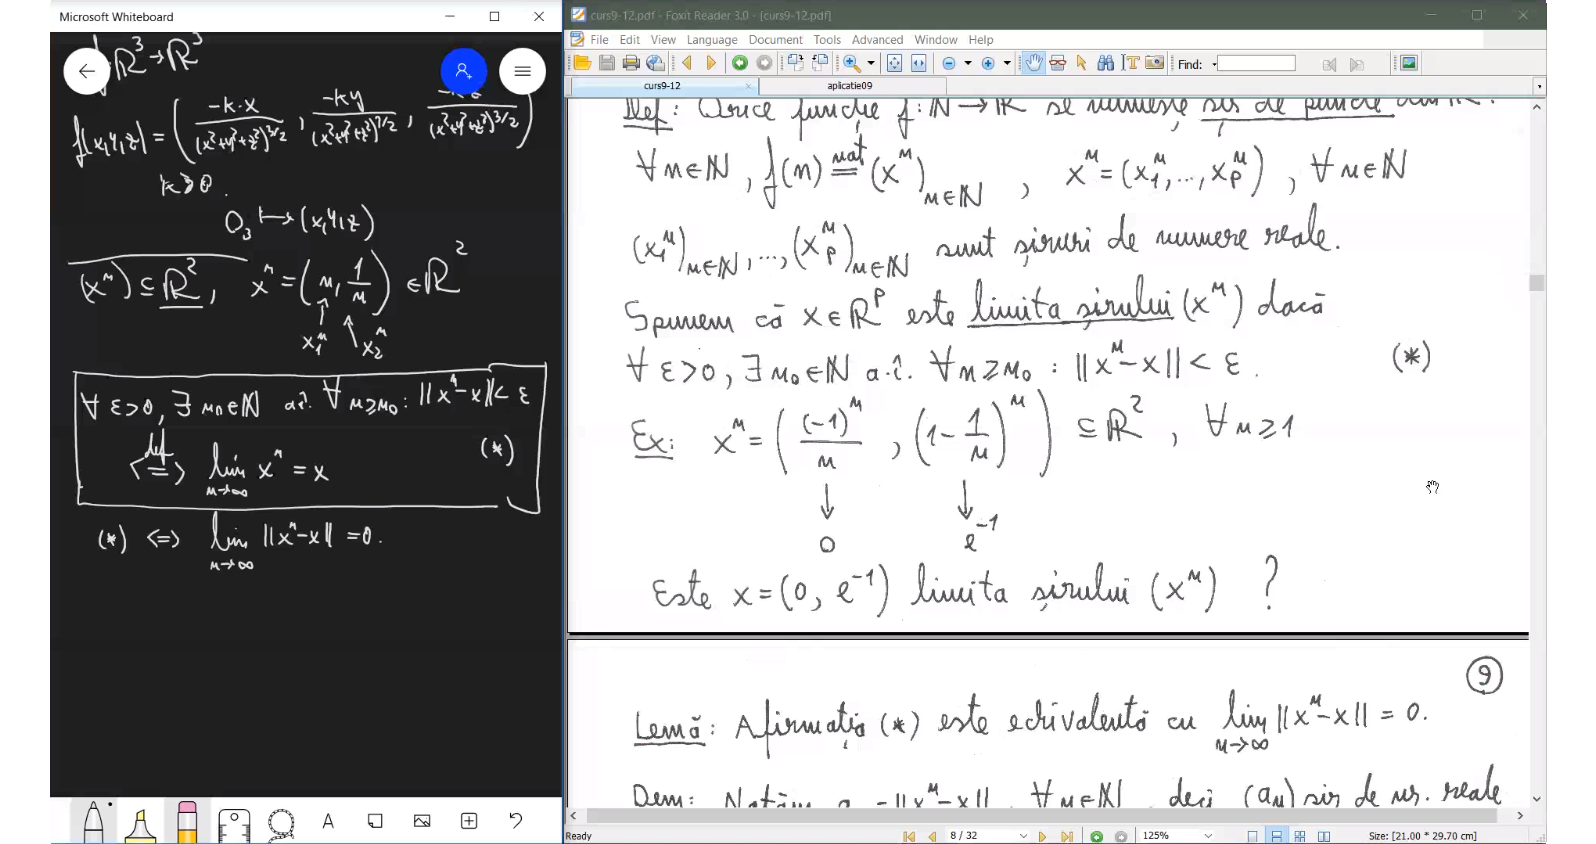 Microsoft Whiteboard
ℝ³ → ℝ³
f(x,y,z) = ( -k·x / (x²+y²+z²)^3/2 , -ky / (x²+y²+z²)^3/2 , -kz / (x²+y²+z²)^3/2 )
k>0.
O₃ ↦ (x,y,z)
(xⁿ) ⊆ ℝ², xⁿ = (n, 1/n) ∈ ℝ²
x₁ⁿ x₂ⁿ
∀ ε>0, ∃ n₀∈ℕ a.î. ∀ n≥n₀ : ||xⁿ-x|| < ε
<=def=> lim n→∞ xⁿ = x (*)
(*) <=> lim n→∞ ||xⁿ-x|| = 0.
A
curs9-12.pdf - Foxit Reader 3.0 - [curs9-12.pdf]
File Edit View Language Document Tools Advanced Window Help
Find:
curs9-12 aplicatie09
Def: Orice funcție f: ℕ → ℝ se numește șir de puncte din
∀ n∈ℕ, f(n) not= (xⁿ) n∈ℕ , xⁿ = (x₁ⁿ, ..., xₚⁿ), ∀ n∈ℕ
(x₁ⁿ) n∈ℕ, ..., (xₚⁿ) n∈ℕ sunt șiruri de numere reale.
Spunem că x∈ℝᵖ este limita șirului (xⁿ) dacă
∀ ε>0, ∃ n₀∈ℕ a.î. ∀ n≥n₀ : ||xⁿ-x|| < ε. (*)
Ex: xⁿ = ( (-1)ⁿ/n , (1 - 1/n)ⁿ ) ⊆ ℝ², ∀ n≥1
↓ ↓
0 e⁻¹
Este x = (0, e⁻¹) limita șirului (xⁿ) ?
9
Lemă: Afirmația (*) este echivalentă cu lim n→∞ ||xⁿ-x|| = 0.
Dem: Notăm aₙ = ||xⁿ-x||, ∀ n∈ℕ, deci (aₙ) șir de nr. reale
Ready 8 / 32 125% Size: [21.00 * 29.70 cm]